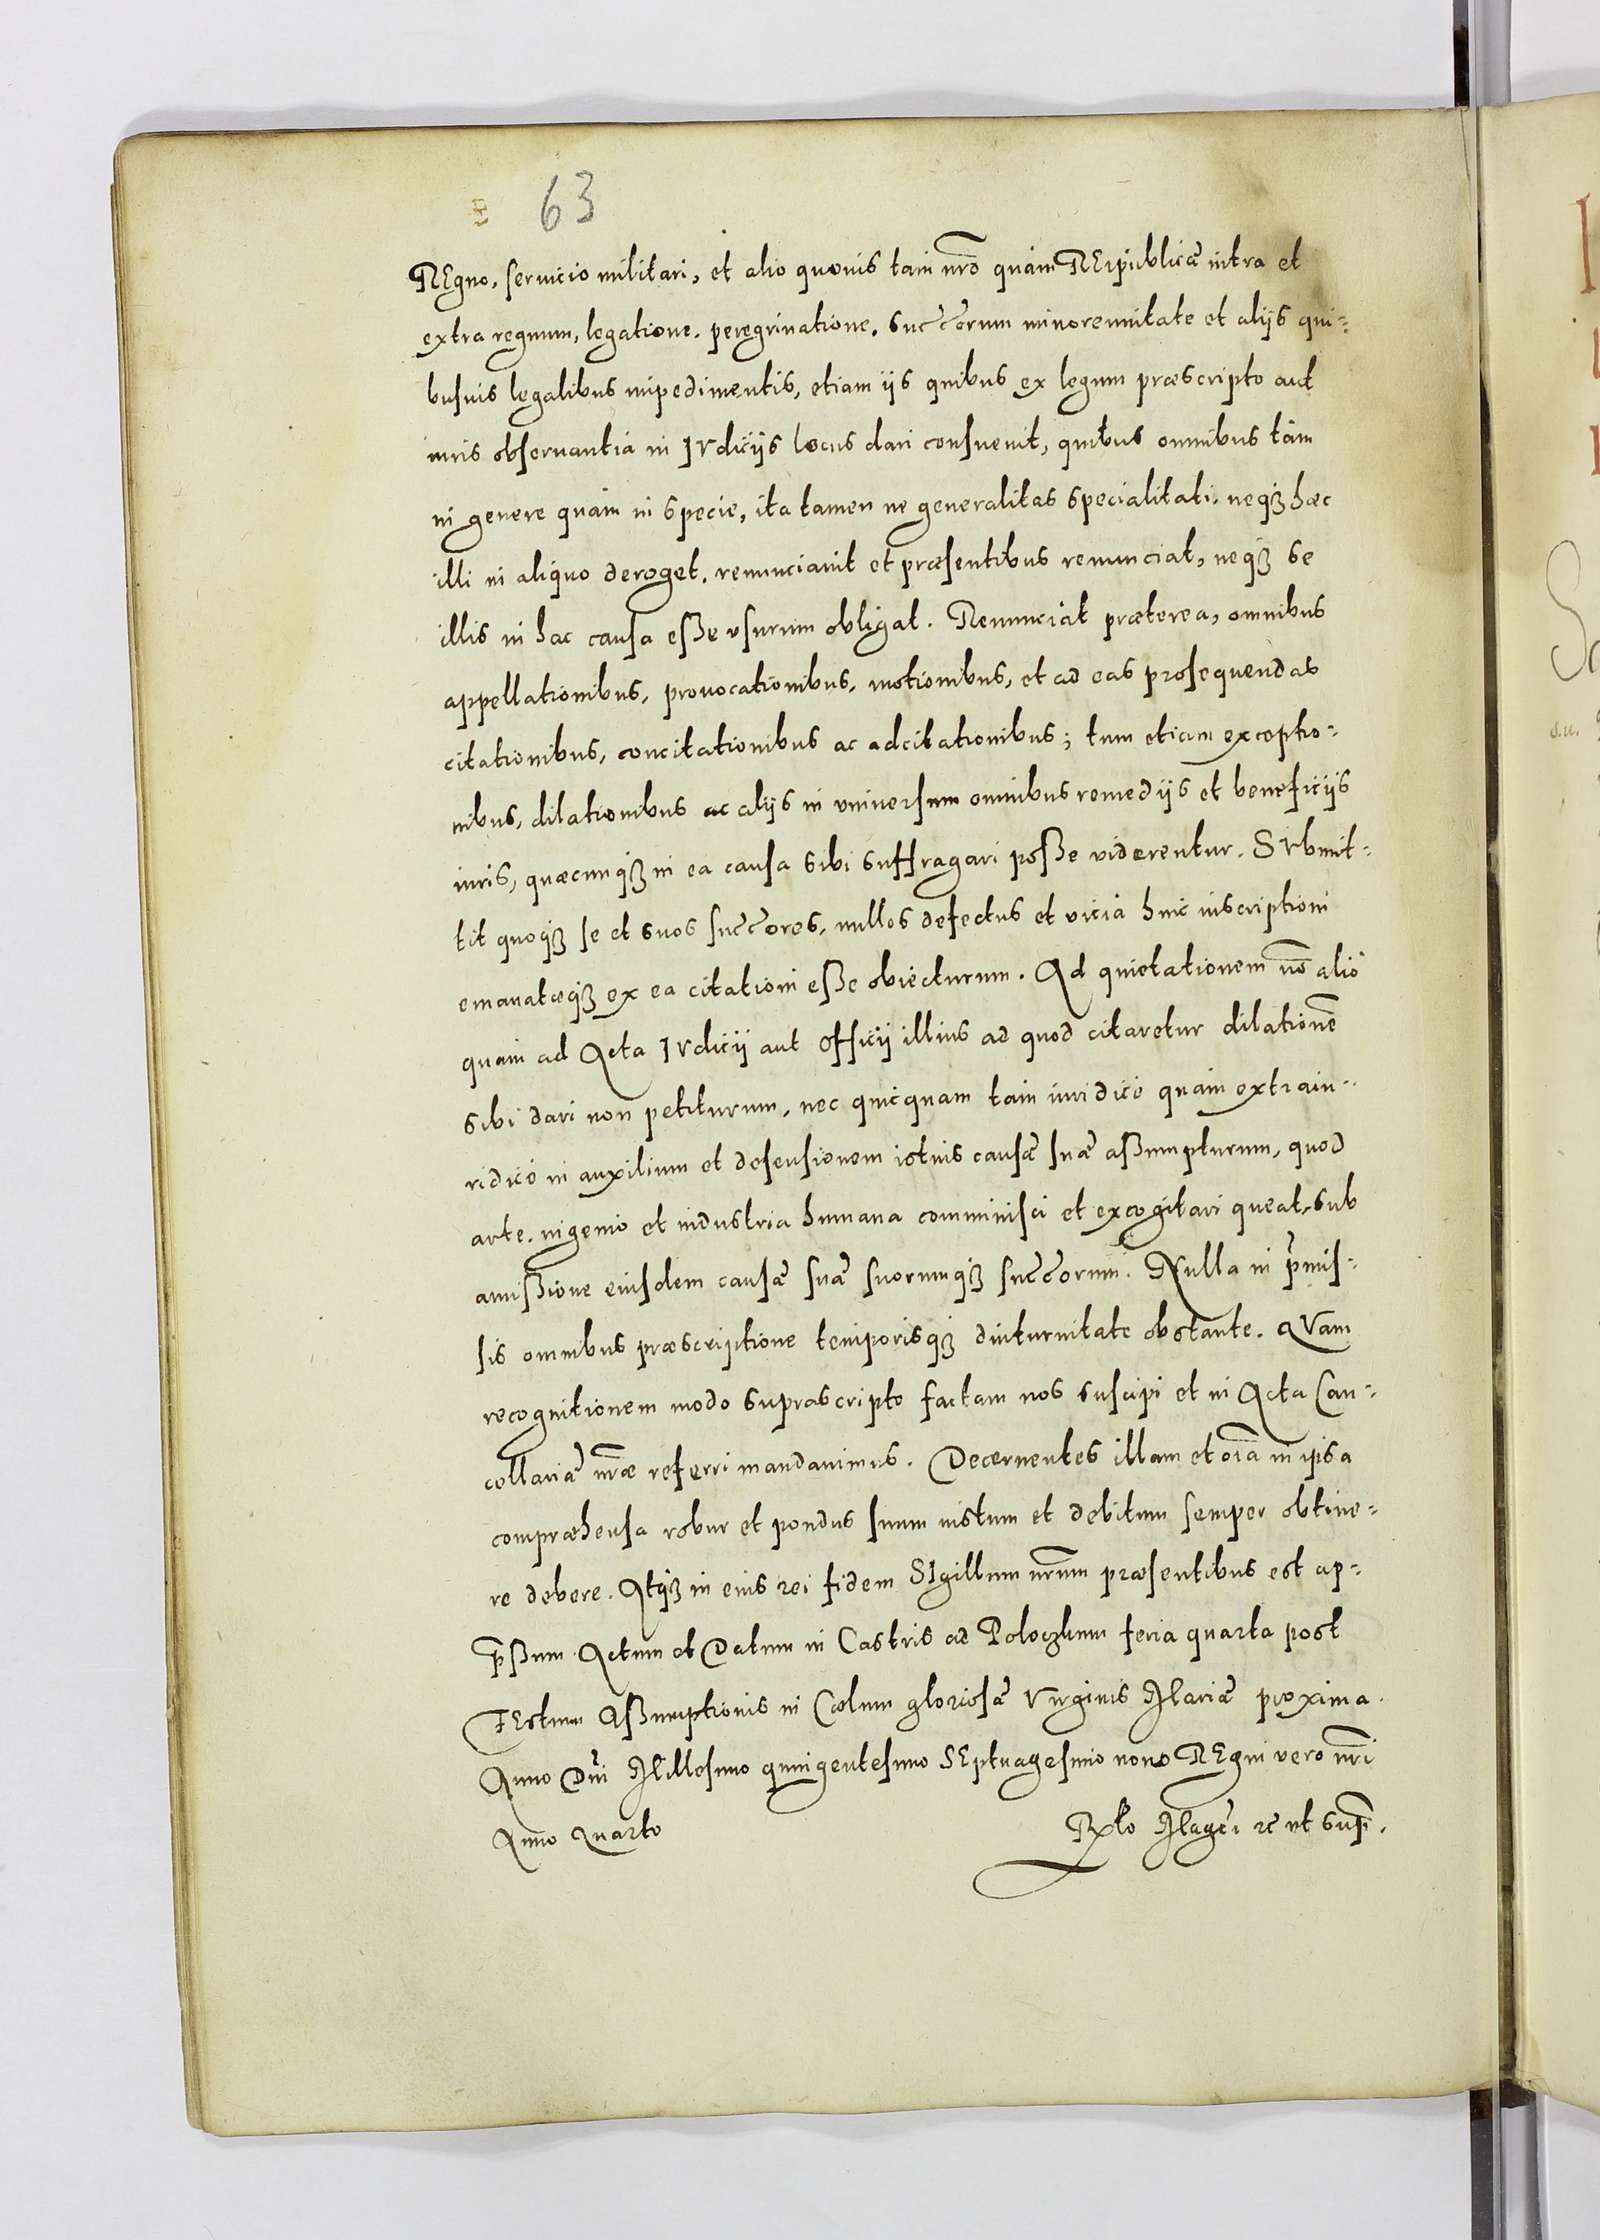 63
REgno, seruicio militari, et alio quouis tam nrō quàm REipublicæ intra et
extra regnum, legatione, peregrinatione, succōrum minorennitate et alijs qui-
busuis legalibus impedimentis, etiam ijs quibus ex legum præscripto aut
iuris obseruantia in IVdicijs locus dari consueuit, quibus omnibus tàm
in genere quàm in specie, ita tamen ne generalitas specialitati, neqꝫ hæc
illi in aliquo deroget, renunciauit et præsentibus renunciat, neqꝫ se
illis in hac causa eße vsurum obligat. Renunciat præterea, omnibus
appellationibus, prouocationibus, motionibus, et ad eas prosequendas
citationibus, concitationibus ac adcitationibus; tum etiam exceptio-
nibus, dilationibus ac alijs in vniuersum omnibus remedijs et beneficijs
iuris, quæcunqꝫ in ea causa sibi suffragari poße viderentur. SVbmit-
tit quoqꝫ se et suos succōres, nullos defectus et vicia huic inscriptioni
emanatæqꝫ ex ea citationi eße obiecturum. Ad quietationem nō aliò
quàm ad Acta IVdicij aut officij illius ad quod citaretur dilationē
sibi dari non petiturum, nec quicquam tam iuridicè quàm extraiu-
ridicè in auxilium et defensionem istius causæ suæ aßumpturum, quod
arte, ingenio et industria humana comminisci et excogitari queat, sub
amißione eiusdem causæ suæ suorumqꝫ succōrum. Nulla in p̄mis-
sis omnibus præscriptione temporisqꝫ diuturnitate obstante. QVam
recognitionem modo suprascripto factam nos suscipi et in Acta Can-
cellariæ nr̄æ referri mandauimus. Decernentes illam et oīa in ipsa
compræhensa robur et pondus suum iustum et debitum semper obtine-
re debere. Atqꝫ in eius rei fidem SIgillum nr̄um præsentibus est ap-
p̄ßum Actum et Datum in Castris ad Poloczkum feria quarta post
FEstum Aßumptionis in Cœlum gloriosæ Virginis Mariæ proxima.
Anno Dnī Millesimo quingentesimo SEptuagesimo nono REgni vero nr̄i
Anno Quarto
Rx̄to Mage͞i ꝛc̄ ut sup̄.